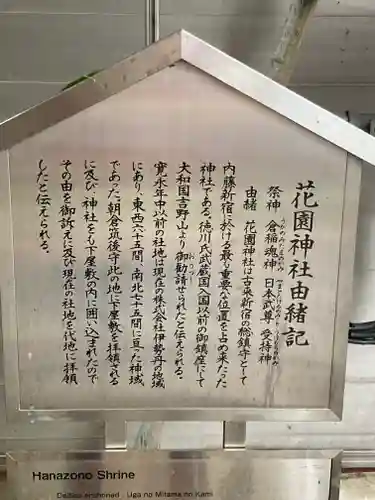 花園神社由緒記
祭神 倉稲魂神 日本武尊 受持神
由緒 花園神社は古来新宿の総鎮守として
内藤新宿に於ける最も重要な位置を占め来たった
神社である。徳川氏武蔵国入国以前の御鎮座にして
大和国吉野山より御勧請せられたと伝えられる。
寛永年中以前の社地は現在の株式会社伊勢丹の地域
にあり、東西六十五間、南北七十五間に亘った神域
であった。朝倉筑後守此の地に下屋敷を拝領される
に及び、神社をも下屋敷の内に囲い込まれたので
その由を御訴えに及び現在の社地を代地に拝領
したと伝えられる。
Hanazono Shrine
Deities enshrined : Uga no Mitama no Kami